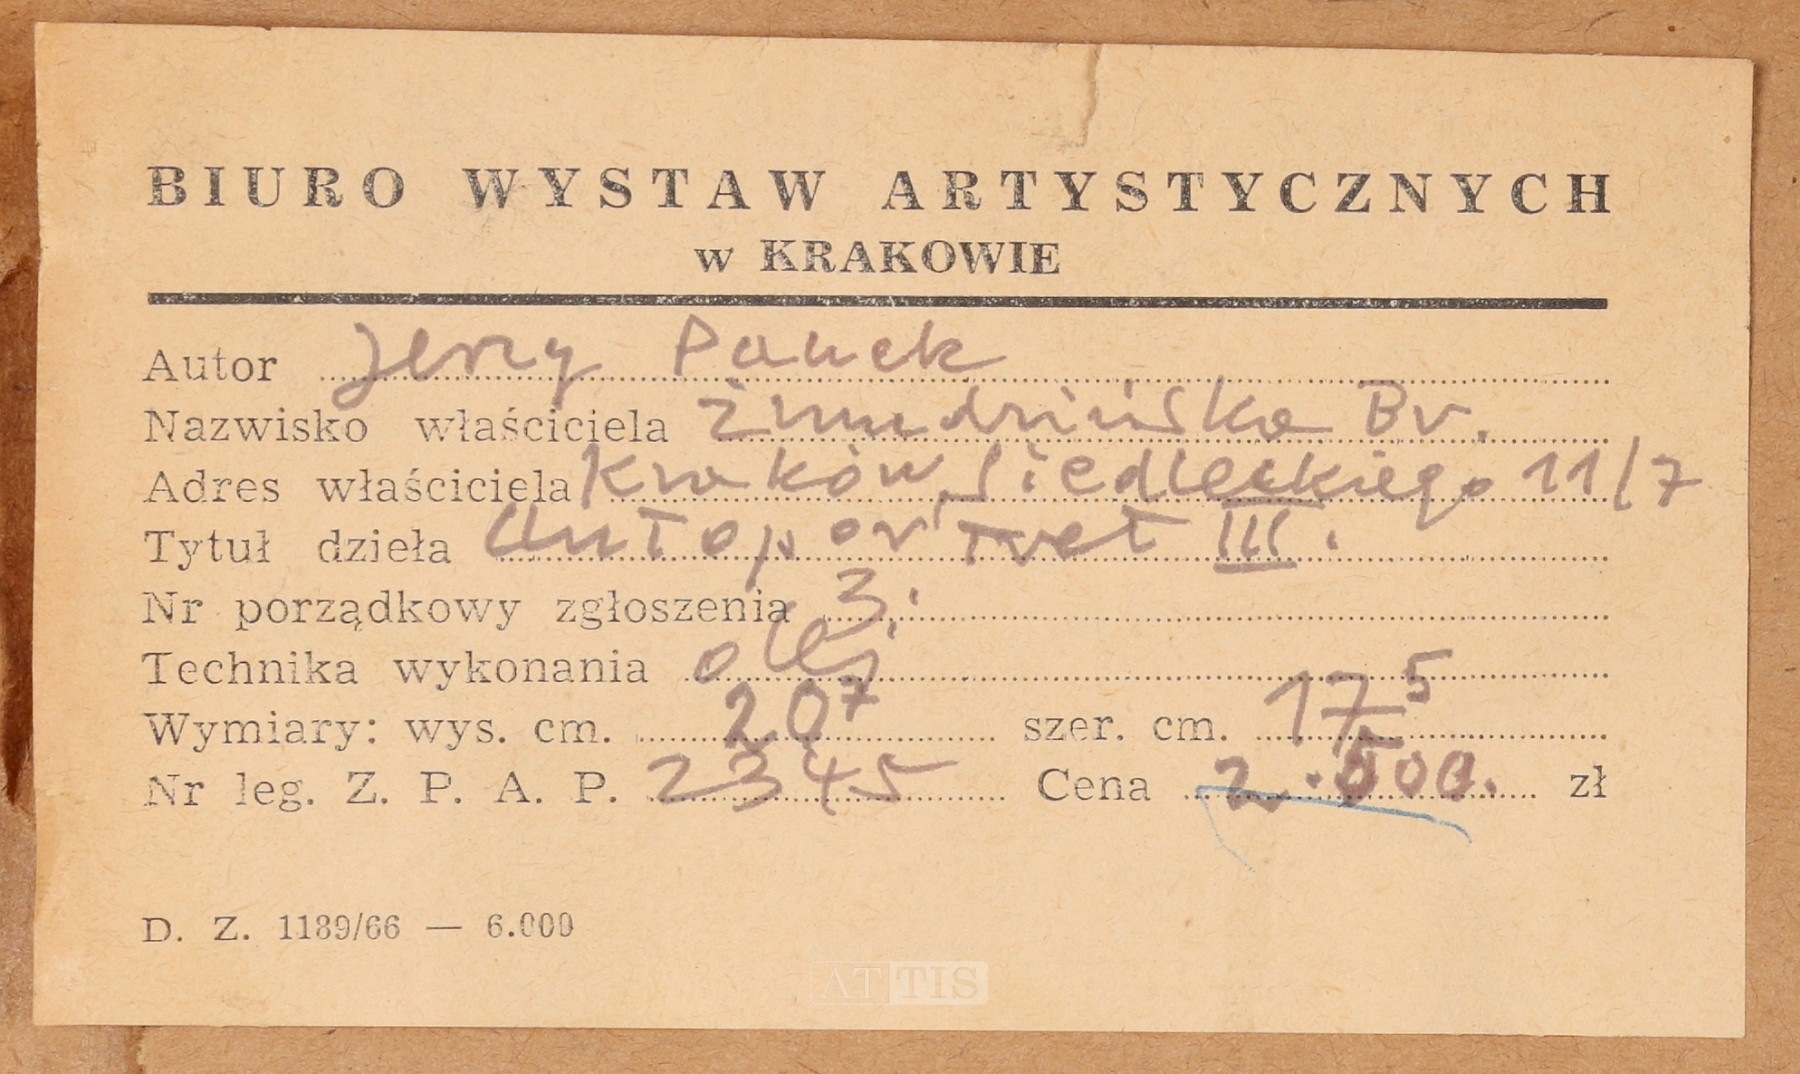 BIURO WYSTAW ARTYSTYCZNYCH
w KRAKOWIE
Autor Jerzy Panek
Nazwisko właściciela Żmudzińska Br.
Adres właściciela Kraków, Siedleckiego 11/7
Tytuł dzieła Autoportret III.
Nr porządkowy zgłoszenia 3.
Technika wykonania olej
Wymiary: wys. cm. 20⁷ szer. cm. 17⁵
Nr leg. Z. P. A. P. 2345 Cena 2.500. zł
D. Z. 1189/66 — 6.000
ATTIS